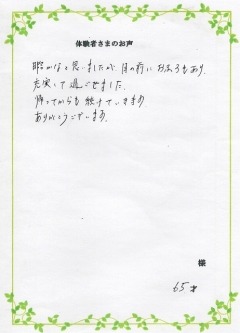 体験者さまのお声
暇かなと思いましたが、目の前に おふろもあり、
充実して過ごせました。
帰ってからも続けていきます。
ありがとうございます。
様
65才